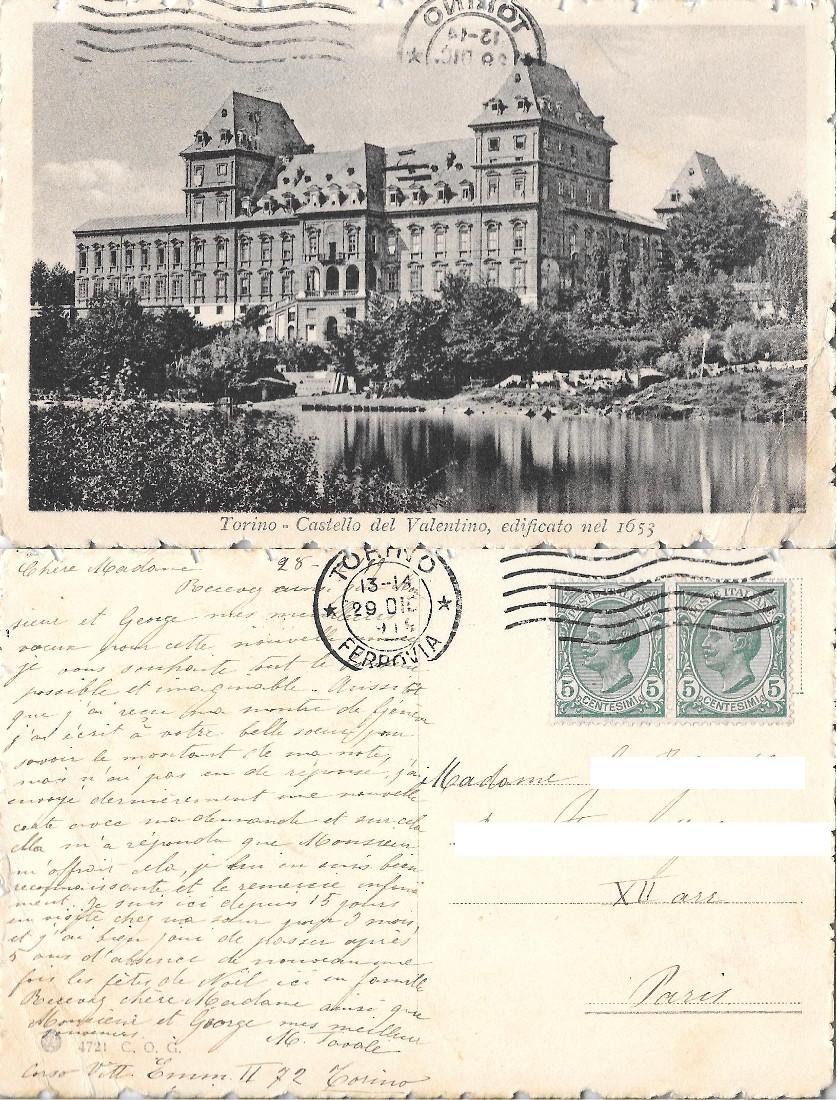 TORINO
12-14
Torino - Castello del Valentino, edificato nel 1653
Chère Madame 28-
Recevez ainsi
sieur et George mes
voeux pour cette nouvelle année
je vous souhaite tout le
possible et imaginable. Aussitôt
que j'ai reçu ma montre de Genève
j'ai écrit à votre belle soeur pour
savoir le montant de ma note,
mais n'ai pas eu de réponse. j'ai
envoyé dernièrement une nouvelle
carte avec ma demande et sur cela
elle m'a répondu que Monsieur
m'offrait cela, je lui en suis bien
reconnaissante et le remercie infini
ment. Je suis ici depuis 15 jours
en visite chez ma soeur pour 3 mois,
et j'ai bien joui de passer après
5 ans d'absence de nouveau une
fois les fêtes de Noël ici en famille
Recevez chère Madame ainsi que
Monsieur et George mes meilleurs
souvenirs. M.
4721 C. O. G.
Corso Vitt. Emm. II 72 Torino
TORINO
13-14
29 DIC
FERROVIA
POSTE ITALIANE
5 CENTESIMI 5
POSTE ITALIANE
5 CENTESIMI 5
Madame
XII arr
Paris